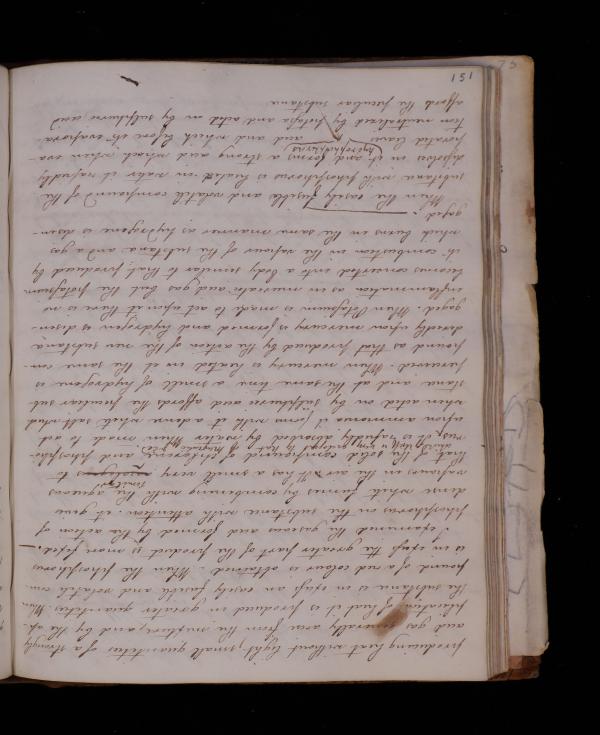 151
producing heat without light, small quantities of a strongly
acid gas generally arise from the mixture, and by the ap-
plication of heat it is produced in greater quantities. When
the substance is in excess an easily fusible and volatile com-
pound of a red colour is obtained. When the phosphorus
is in excess the greater part of the product is more fixed.
I examined the gaseous acid formed by the action of
phosphorus on the substance with attention. it gave
dense white fumes by combining with the aqueous
similar
vapours in the air. It has a smell very analogous to
that of the solid compound of chlorine and phospho-
and still more to that of muriatic acid
rus, it is rapidly absorbed by water. When made to act
upon ammonia it forms with it a dense white salt which
when acted on by sulphuric acid affords the peculiar sub
stance and at the same time a smell of hydrogene is
perceived. When mercury is heated in it the same com-
pound as that produced by the action of the new substance
directly upon mercury is formed and hydrogen is disen-
gaged. When Potassium is made to act upon it there is no
inflammation as in muriatic acid gas but the potassium
becomes converted into a body similar to that produced by
its combustion in the vapour of the substance and a gas
which burns in the same manner as hydrogene is disen-
gaged.
When the easily fusible and volatile compound of the
substance with phosphorus is heated in water it rapidly
dissolves in it and forms a strong acid which when eva
hypophosphorus
porated leaves acid and which before its evapora-
tion neutralized by potassa and acted on by sulphuric acid
afford the peculiar substance